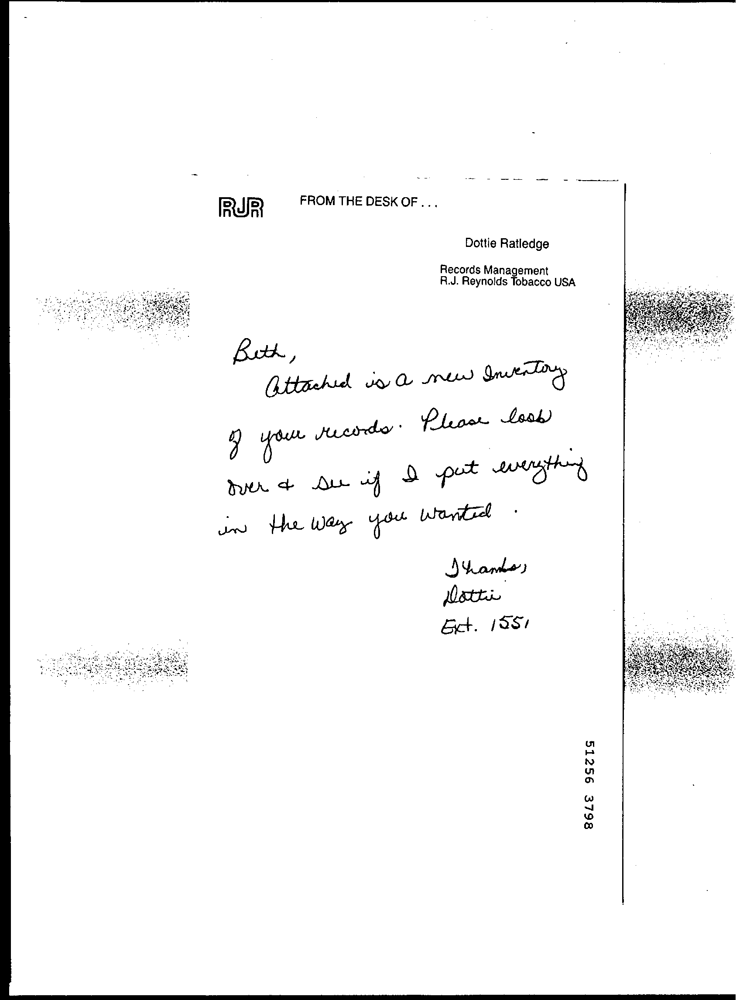 RJR
FROM THE DESK OF . . .
Dottie Ratledge
Records Management
R.J. Reynolds Tobacco USA
Beth,
Attached is a new Inventory
of your records. Please look
over & see if I put everything
in the way you wanted.
Thanks,
Dottie
Ext. 1551
51256 3798